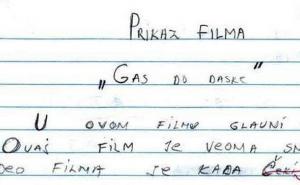 PRIKAZ FILMA
„GAS DO DASKE"
U OVOM FILMU GLAVNI
OVAJ FILM JE VEOMA
DEO FILMA JE KADA